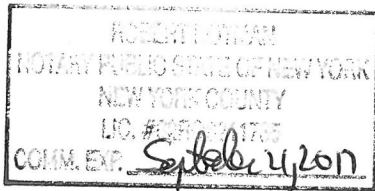 ROBERT
NOTARY PUBLIC STATE OF NEW YORK
NEW YORK COUNTY
LIC. #
COMM. EXP. September 4, 2017